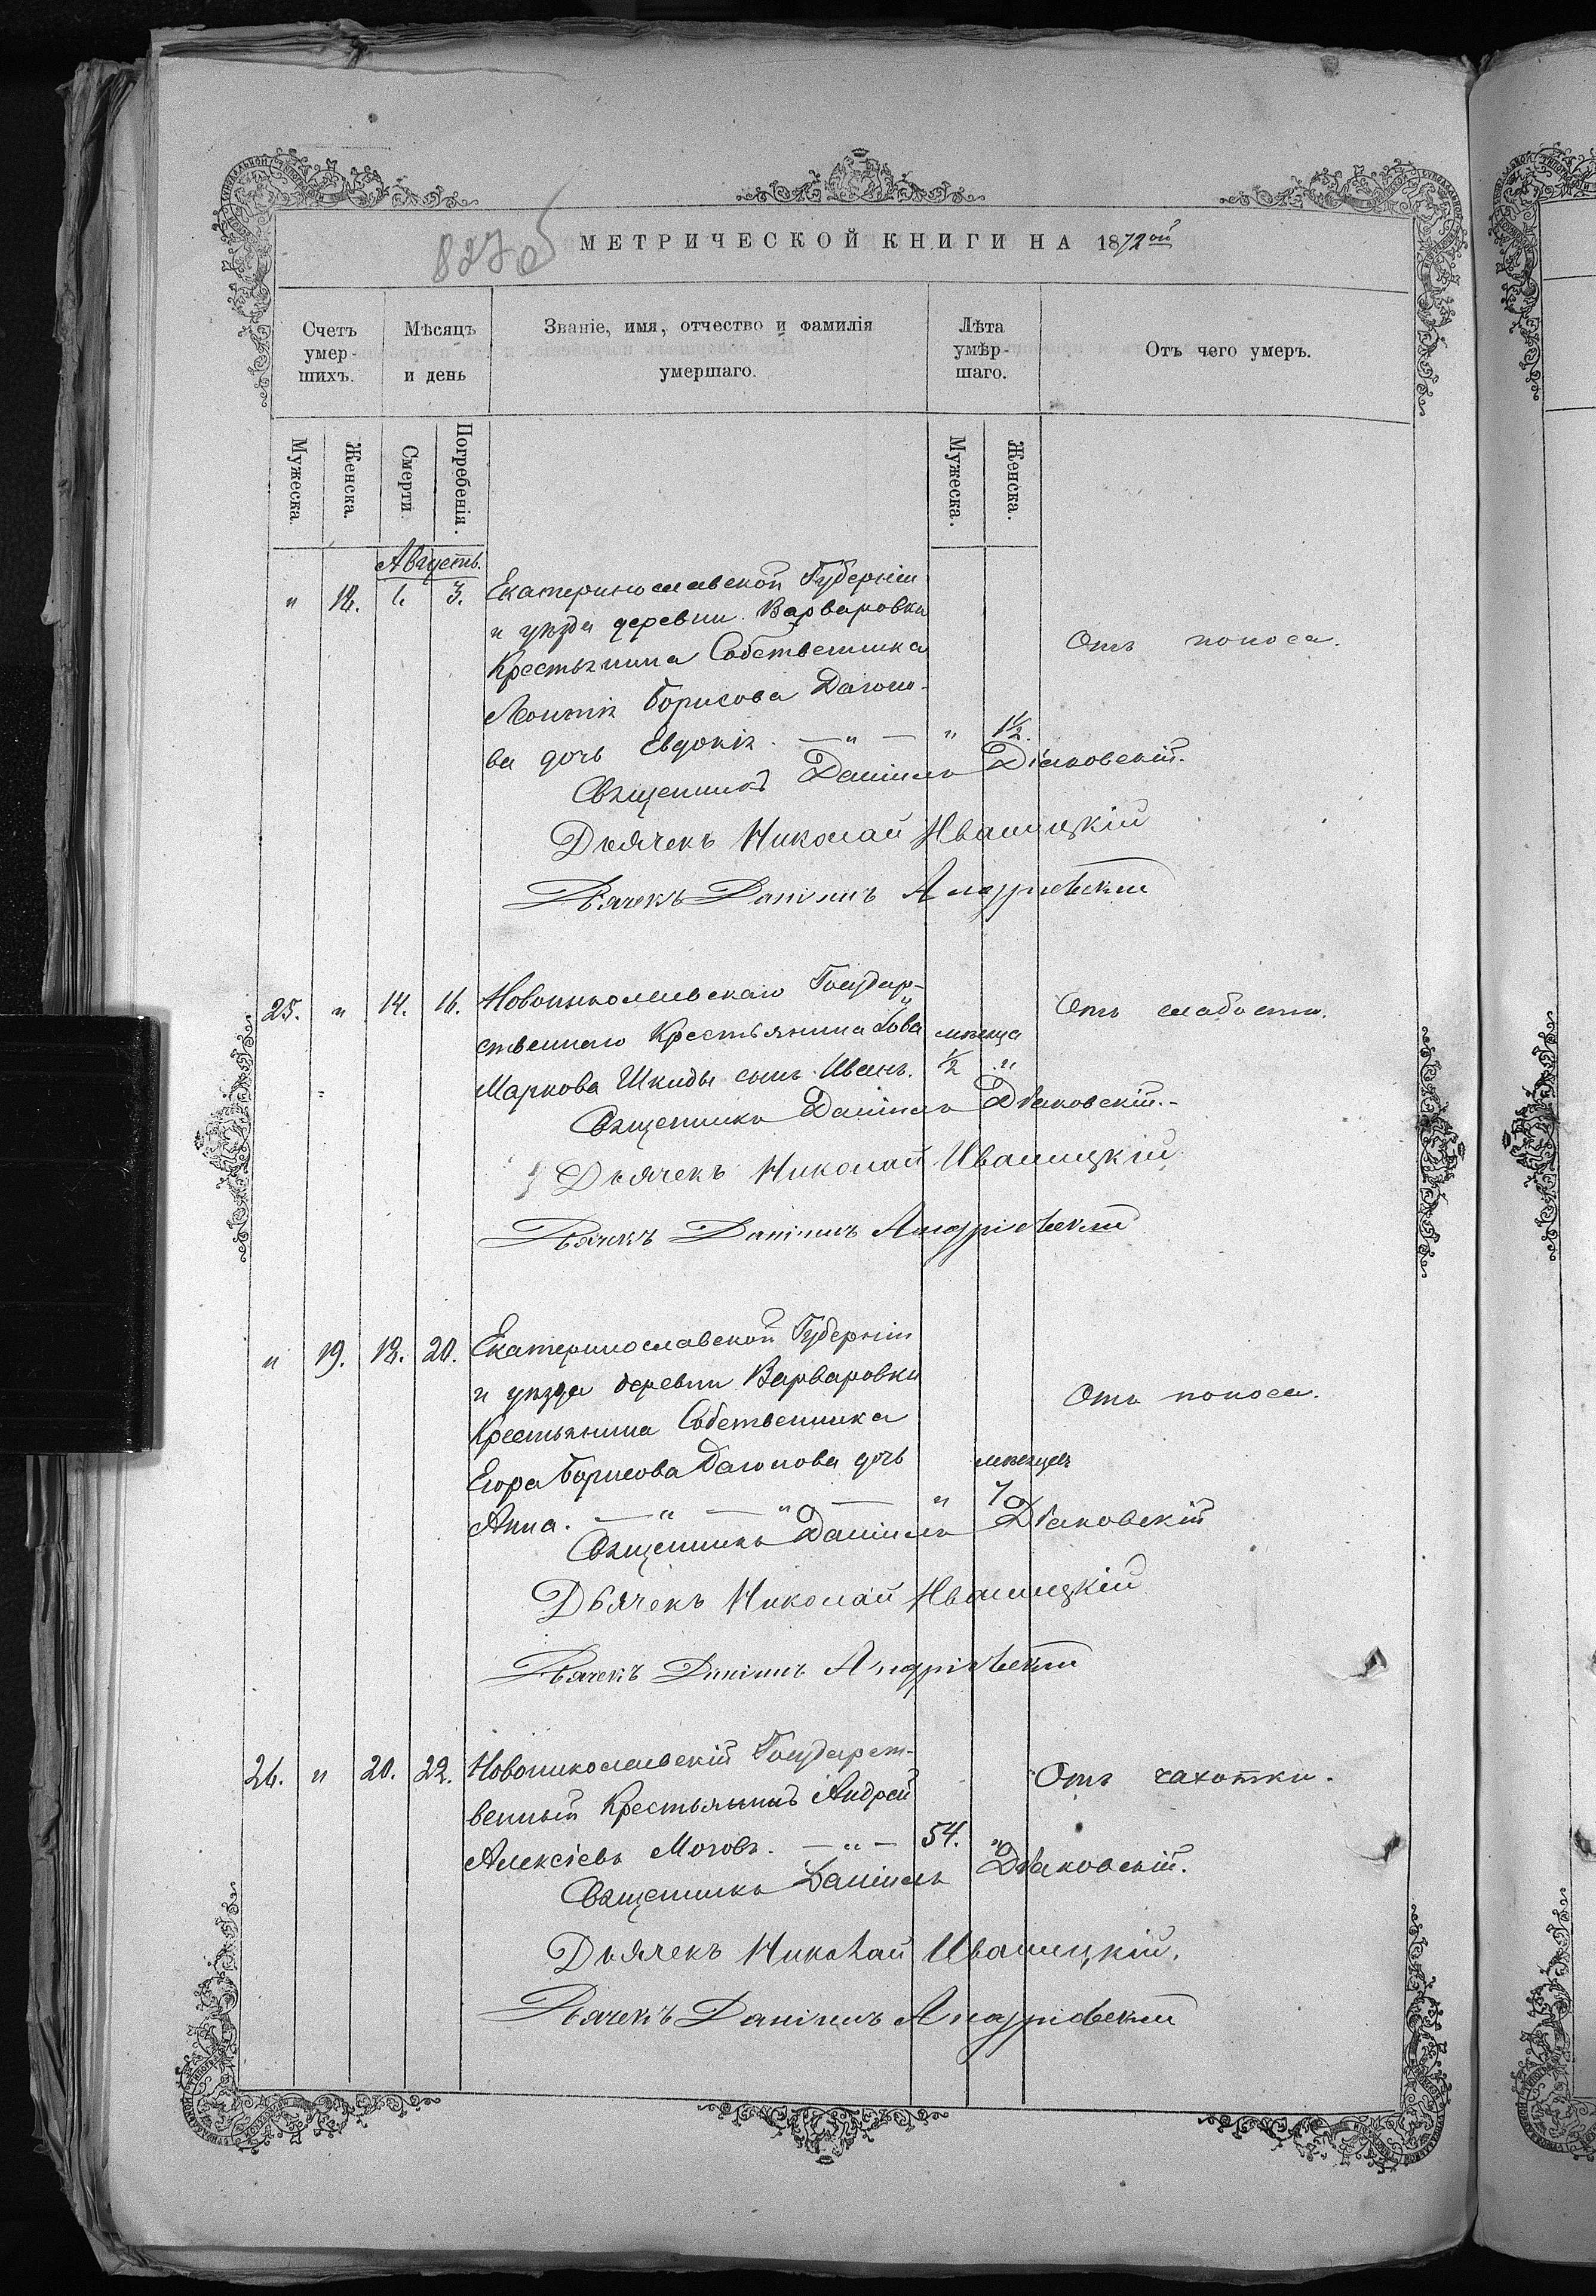 МЕТРИЧЕСКОЙ КНИГИ НА 1872ой
Счетъ умер-шихъ.
Мѣсяцъ и день
Званіе, имя, отчество и фамилія умершаго.
Лѣта умер-шаго.
Отъ чего умеръ.
Мужеска.
Женска.
Смерти.
Погребенія.
Мужеска.
Женска.
Августъ.
" 18. 1. 3. Екатеринославской Губерніи
и уѣзда деревни Варваровки
Отъ поноса.
Крестьянина Собственника
Борисова Дагоно-
ва дочь Евдокія. — " — " 1½.
Священникъ Даніилъ Діаковскій.
Дьячекъ Николай Иваницкій
Дьячекъ Даніилъ Андріевскій
25. " 14. 16. Новониколаевскаго Государ- Отъ слабости.
ственнаго Крестьянина мѣсяца
Маркова Шкиды сынъ Иванъ. ½ "
Священникъ Даніилъ Діаковскій.-
Дьячекъ Николай Иваницкій
Дьячекъ Даніилъ Андріевскій
" 19. 18. 20. Екатеринославской Губерніи
и уѣзда деревни Варваровки
Отъ поноса.
Крестьянина Собственника
Егора Борисова Дагонова дочь мѣсяцевъ
Анна. — " — " — " 7
Священникъ Даніилъ Діаковскій
Дьячекъ Николай Иваницкій
Дьячекъ Даніилъ Андріевскій
26. " 20. 22. Новониколаевскій Государст- Отъ чахотки.
венный Крестьянинъ Андрей
Алексіевъ Моговъ. — " — 54. "
Священникъ Даніилъ Діаковскій.
Дьячекъ Николай Иваницкій.
Дьячекъ Даніилъ Андріевскій